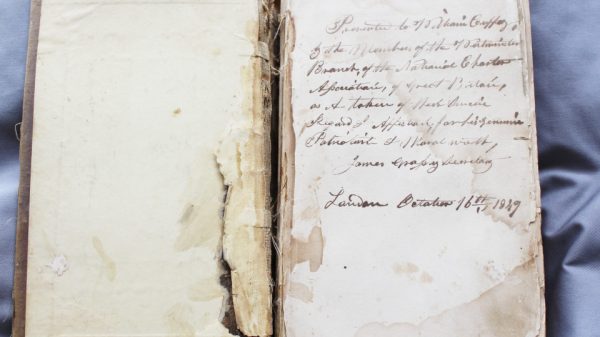 Presented to William Cuffay
By the Members of the Westminster
Branch, of the National Charter
Association, of Great Britain,
as A token of
Regard & Affection, for his Genuine
Patriotism & Moral Worth,
James Grassby Secretary
London October 16th 1849